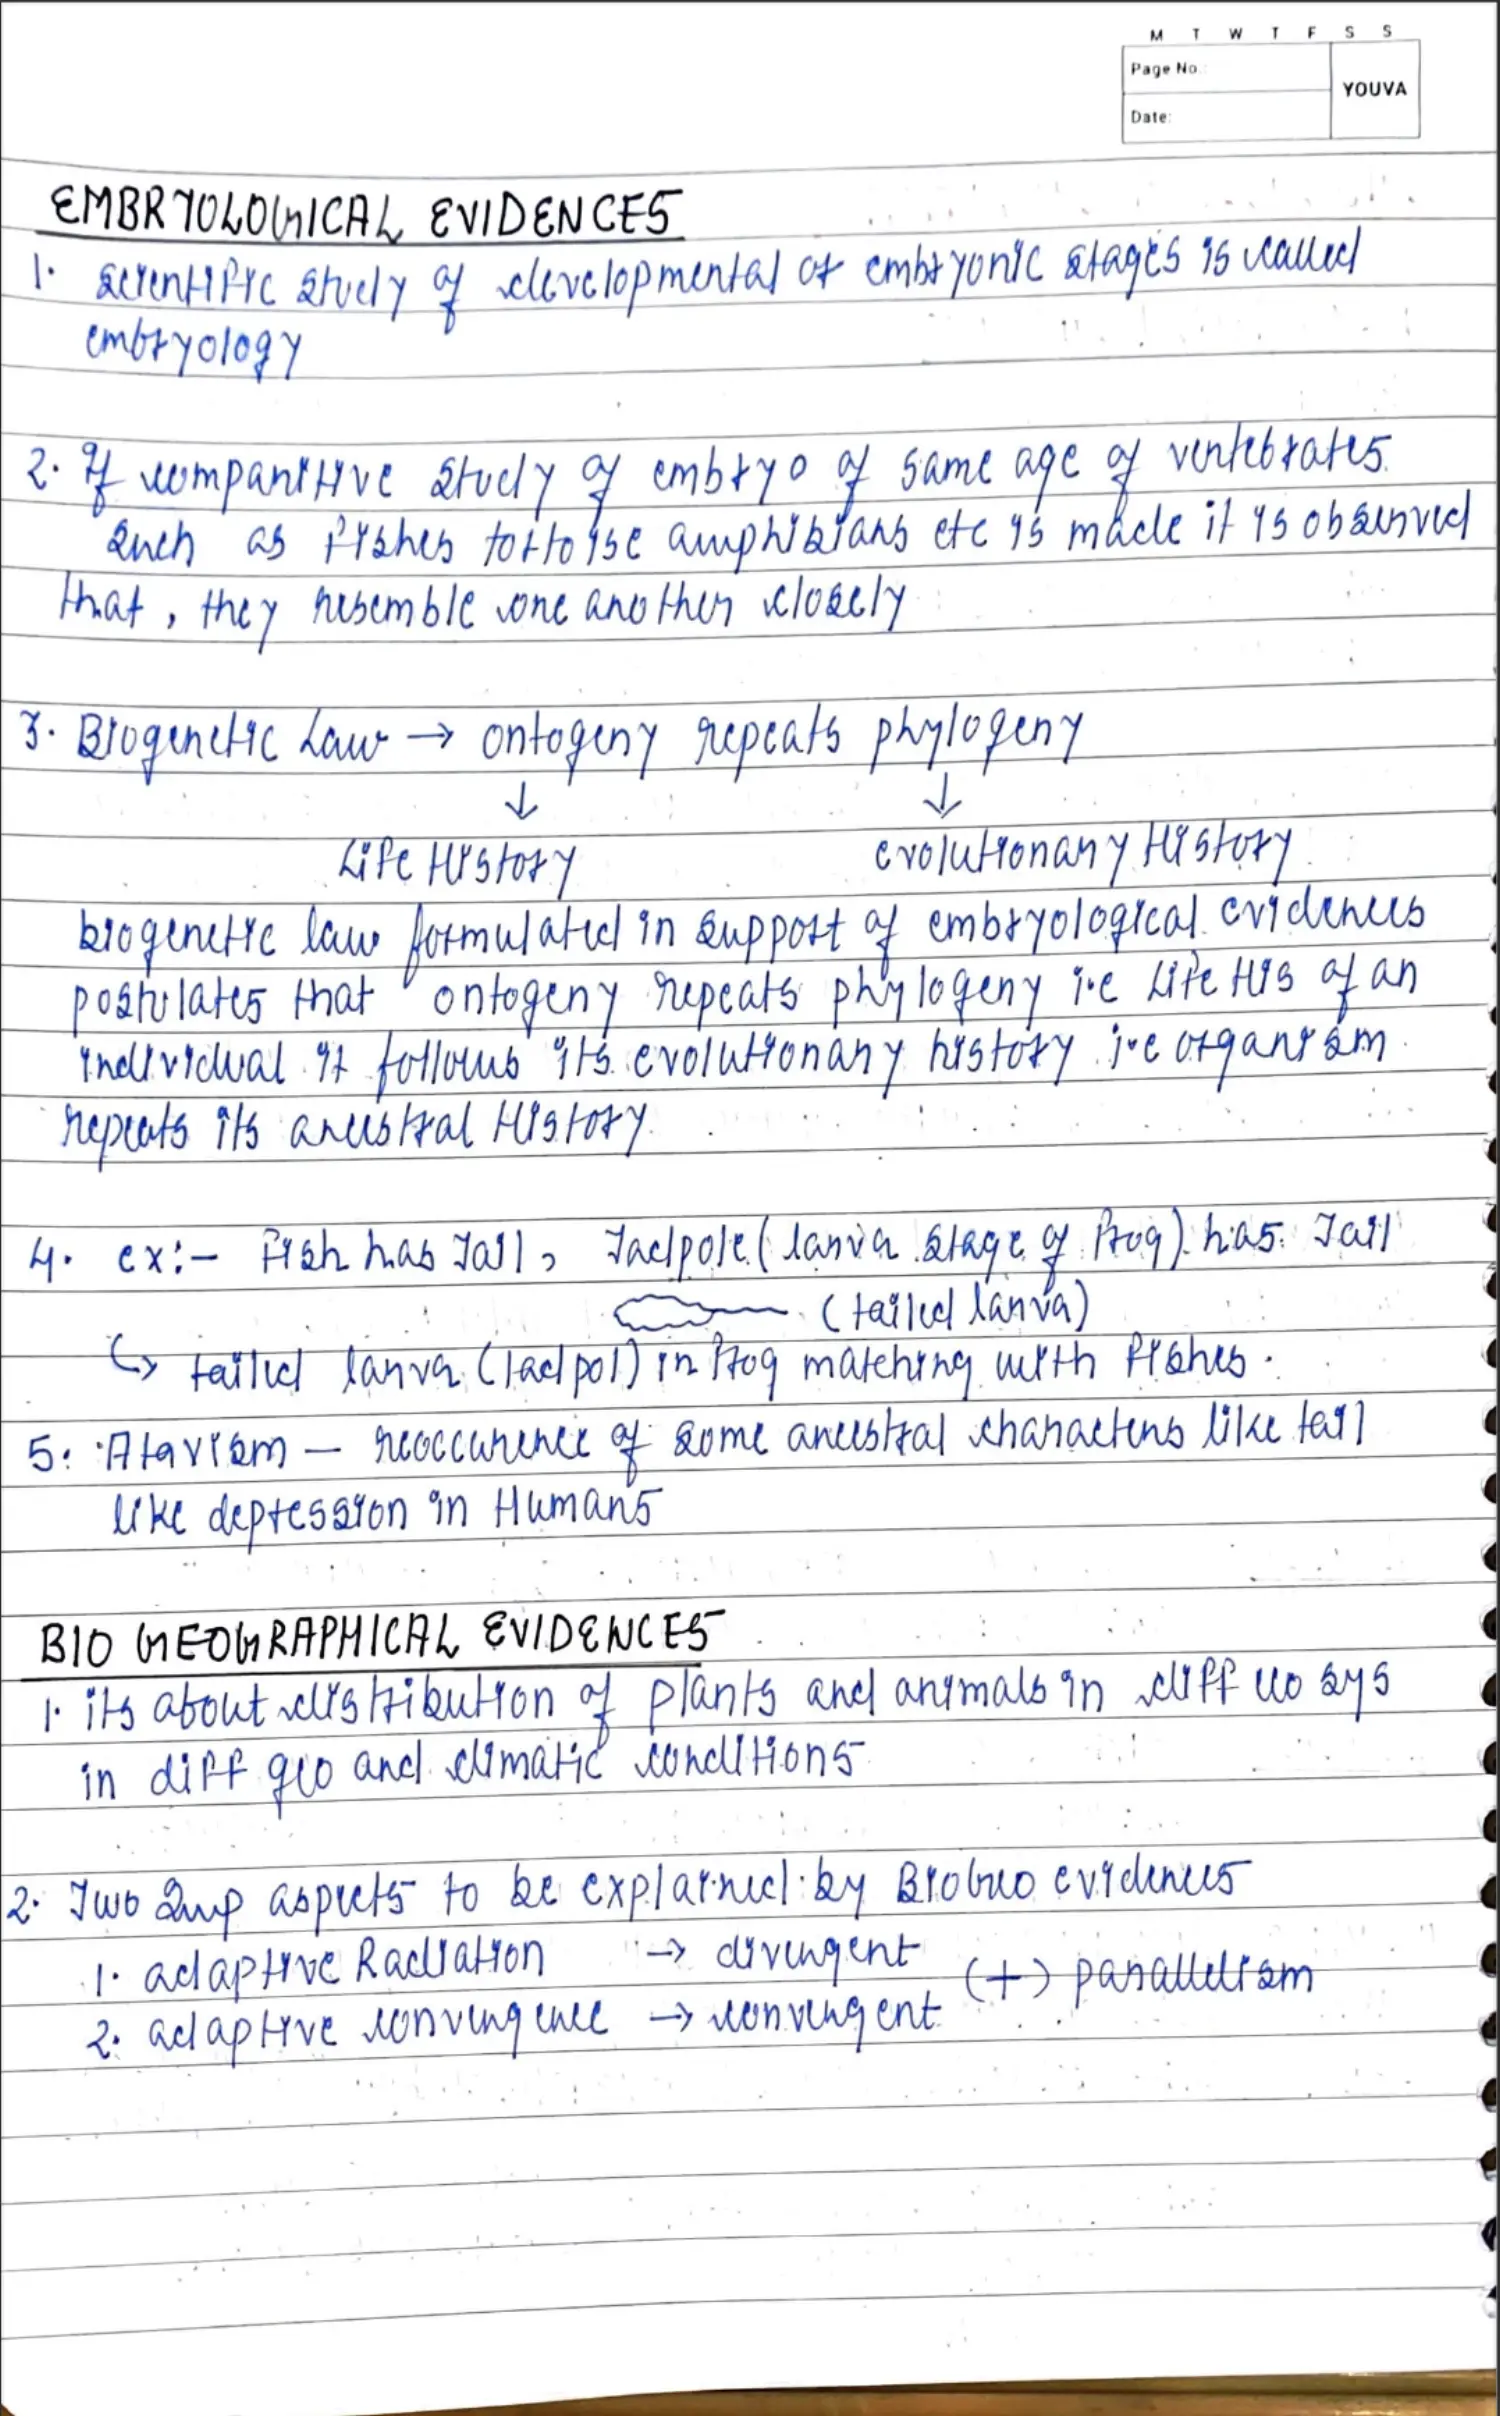 M T W T F S S
Page No.:
YOUVA
Date:
EMBRYOLOGICAL EVIDENCES
1. Scientific study of developmental or embryonic stages is called
embryology
2. If companitive study of embryo of same age of vertebrates
such as fishes tortoise amphibians etc is made it is observed
that, they resemble one another closely
3. Biogenetic Law → ontogeny repeats phylogeny
↓ ↓
Life History evolutionary History
biogenetic law formulated in support of embryological evidences
postulates that ontogeny repeats phylogeny i.e Life His of an
individual it follows its evolutionary history i.e organism
repeats its ancestral History
4. ex:- Fish has Tail, Tadpole (larva stage of frog) has Tail
(tailed larva)
↳ tailed larva (tadpol) in frog matching with fishes.
5. Atavism – reoccurence of some ancestral characters like tail
like depression in Humans
BIO GEOGRAPHICAL EVIDENCES
1. its about distribution of plants and animals in diff eco sys
in diff geo and climatic conditions
2. Two Imp aspects to be explained by BioGeo evidences
1. adaptive Radiation → divergent
(+) parallelism
2. adaptive convergence → convergent